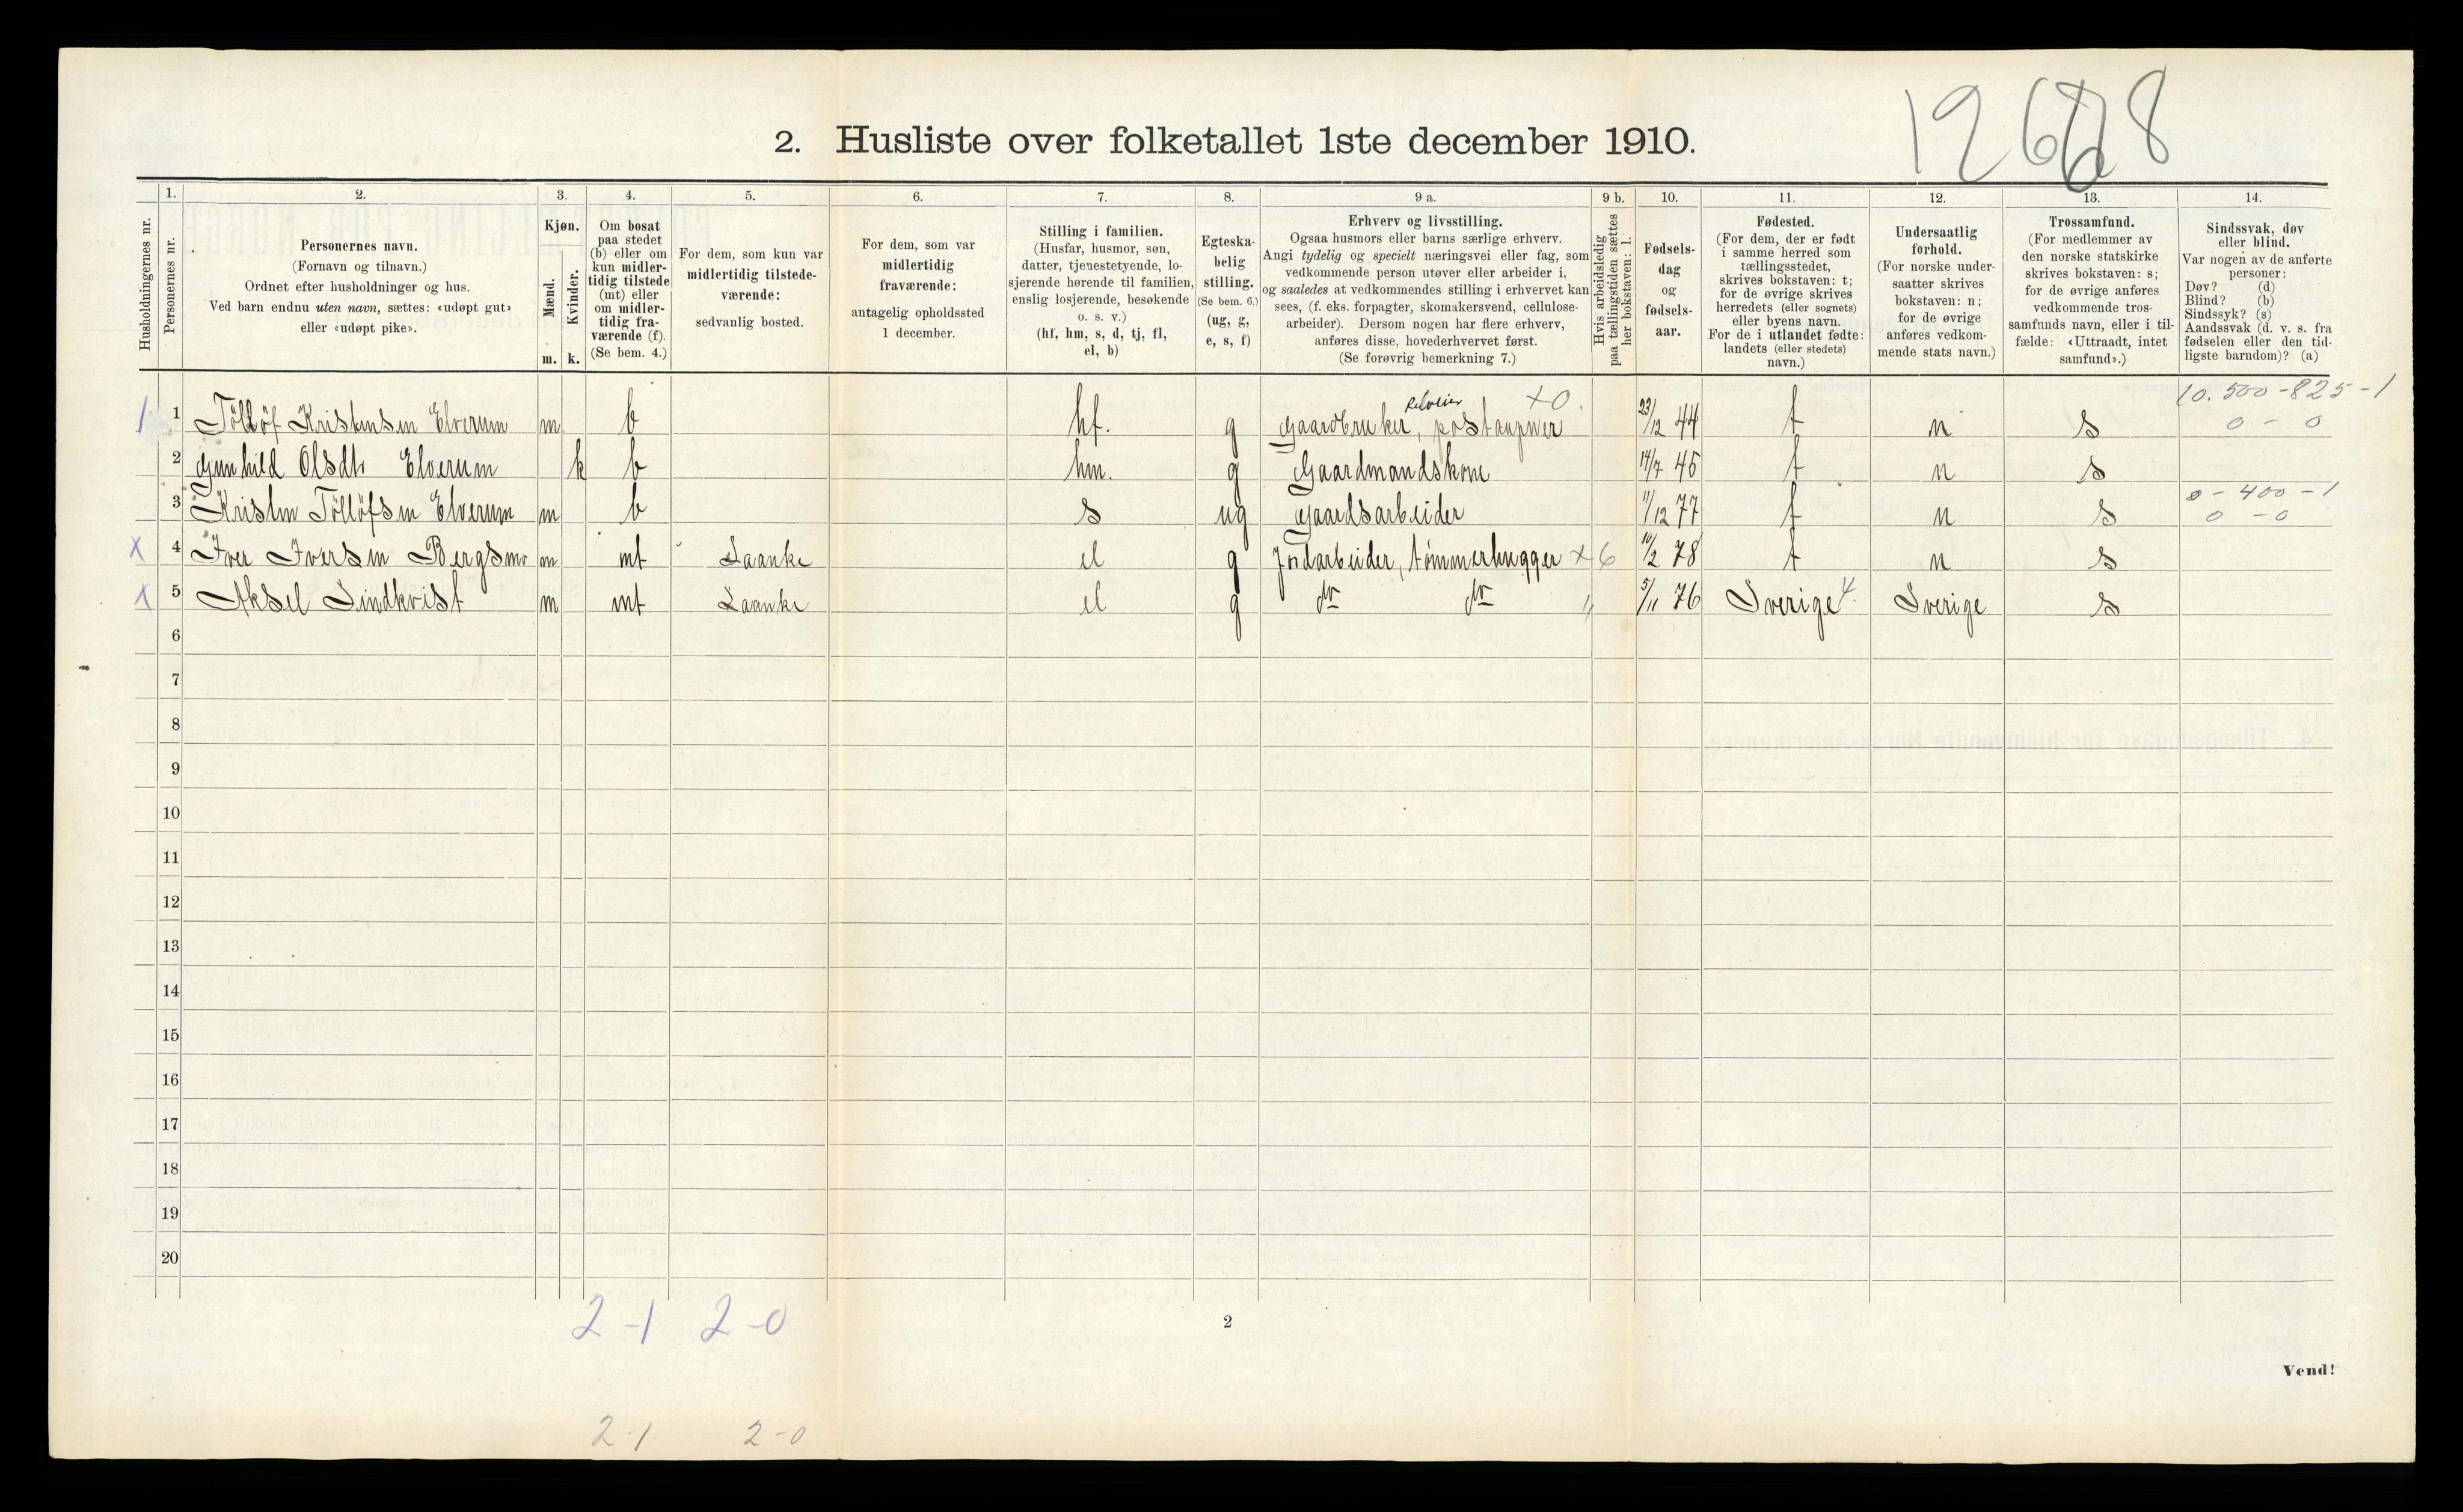 12628
2. Husliste over folketallet 1ste december 1910.
Husholdningernes nr.
1.
Personernes nr.
2.
Personernes navn.
(Fornavn og tilnavn.)
Ordnet efter husholdninger og hus.
Ved barn endnu uten navn, sættes: «udøpt gut»
eller «udøpt pike».
3.
Kjøn.
Mænd.
Kvinder.
m. k.
4.
Om bosat
paa stedet
(b) eller om
kun midler-
tidig tilstede
(mt) eller
om midler-
tidig fra-
værende (f).
(Se bem. 4.)
5.
For dem, som kun var
midlertidig tilstede-
værende:
sedvanlig bosted.
6.
For dem, som var
midlertidig
fraværende:
antagelig opholdssted
1 december.
7.
Stilling i familien.
(Husfar, husmor, søn,
datter, tjenestetyende, lo-
sjerende hørende til familien,
enslig losjerende, besøkende
o. s. v.)
(hf, hm, s, d, tj, fl,
el, b)
8.
Egteska-
belig
stilling.
(Se bem. 6.)
(ug, g,
e, s, f)
9 a.
Erhverv og livsstilling.
Ogsaa husmors eller barns særlige erhverv.
Angi tydelig og specielt næringsvei eller fag, som
vedkommende person utøver eller arbeider i,
og saaledes at vedkommendes stilling i erhvervet kan
sees, (f. eks. forpagter, skomakersvend, cellulose-
arbeider). Dersom nogen har flere erhverv,
anføres disse, hovederhvervet først.
(Se forøvrig bemerkning 7.)
9 b.
Hvis arbeidsledig
paa tællingstiden sættes
her bokstaven: l.
10.
Fødsels-
dag
og
fødsels-
aar.
11.
Fødested.
(For dem, der er født
i samme herred som
tællingsstedet,
skrives bokstaven: t;
for de øvrige skrives
herredets (eller sognets)
eller byens navn.
For de i utlandet fødte:
landets (eller stedets)
navn.)
12.
Undersaatlig
forhold.
(For norske under-
saatter skrives
bokstaven: n;
for de øvrige
anføres vedkom-
mende stats navn.)
13.
Trossamfund.
(For medlemmer av
den norske statskirke
skrives bokstaven: s;
for de øvrige anføres
vedkommende tros-
samfunds navn, eller i til-
fælde: «Uttraadt, intet
samfund».)
14.
Sindssvak, døv
eller blind.
Var nogen av de anførte
personer:
Døv? (d)
Blind? (b)
Sindssyk? (s)
Aandssvak (d. v. s. fra
fødselen eller den tid-
ligste barndom)? (a)
+0. 10.500-825-1
1 Tølløf Kristensen Elverum m b hf. g Gaardbruker, postaapner 23/12 44 t n s 0 - 0
2 Gunhild Olsdtr Elverum k b hm. g Gaardmandskone 14/7 45 t n s
0 - 400 - 1
3 Kristen Tølløfsen Elverum m b s ug Gaardsarbeider 11/12 77 t n s 0 - 0
X 4 Iver Iversen Bergsmo m mt Laanke el g Jordarbeider, tømmerhugger x6 10/2 78 t n s
X 5 Aksel Lindkvist m mt Laanke el g do do 5/11 76 Sverige 4 Sverige s
6
7
8
9
10
11
12
13
14
15
16
17
18
19
20
2-1 2-0
2
Vend!
2-1 2-0